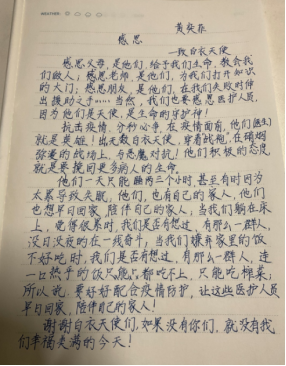 感恩
黄奕菲
—致白衣天使
感恩父母,是他们,给予我们生命,教会我
们做人;感恩老师,是他们,为我们打开知识
的大门;感恩朋友,是他们,在我们失败时伸
出援助之手……当然,我们也要感恩医护人员,
因为他们是天使,是生命的守护神!
抗击疫情,分秒必争,在疫情面前,他们医生
就是英雄!出无数白衣天使,穿着战袍,在硝烟
弥漫的战场上,与恶魔对抗!他们积极的态度,
就是要挽回更多病人的生命。
他们一天只能睡两三个小时,甚至有时因为
太累导致失眠,他们,也有自己的家人,他们
也想早日回家,陪伴自己的家人;当我们躺在床
上,觉得很累时,我们是否有想过,有那么一群人,
没日没夜的在一线奋斗;当我们嫌弃家里的饭
不好吃时,我们是否有想过,有那么一群人,连
一口热乎的饭都吃不上,只能吃榨菜;
所以说,要好好配合疫情防护,让这些医护人员
早日回家,陪伴自己的家人!
谢谢白衣天使们,如果没有你们,就没有我
们幸福美满的今天!